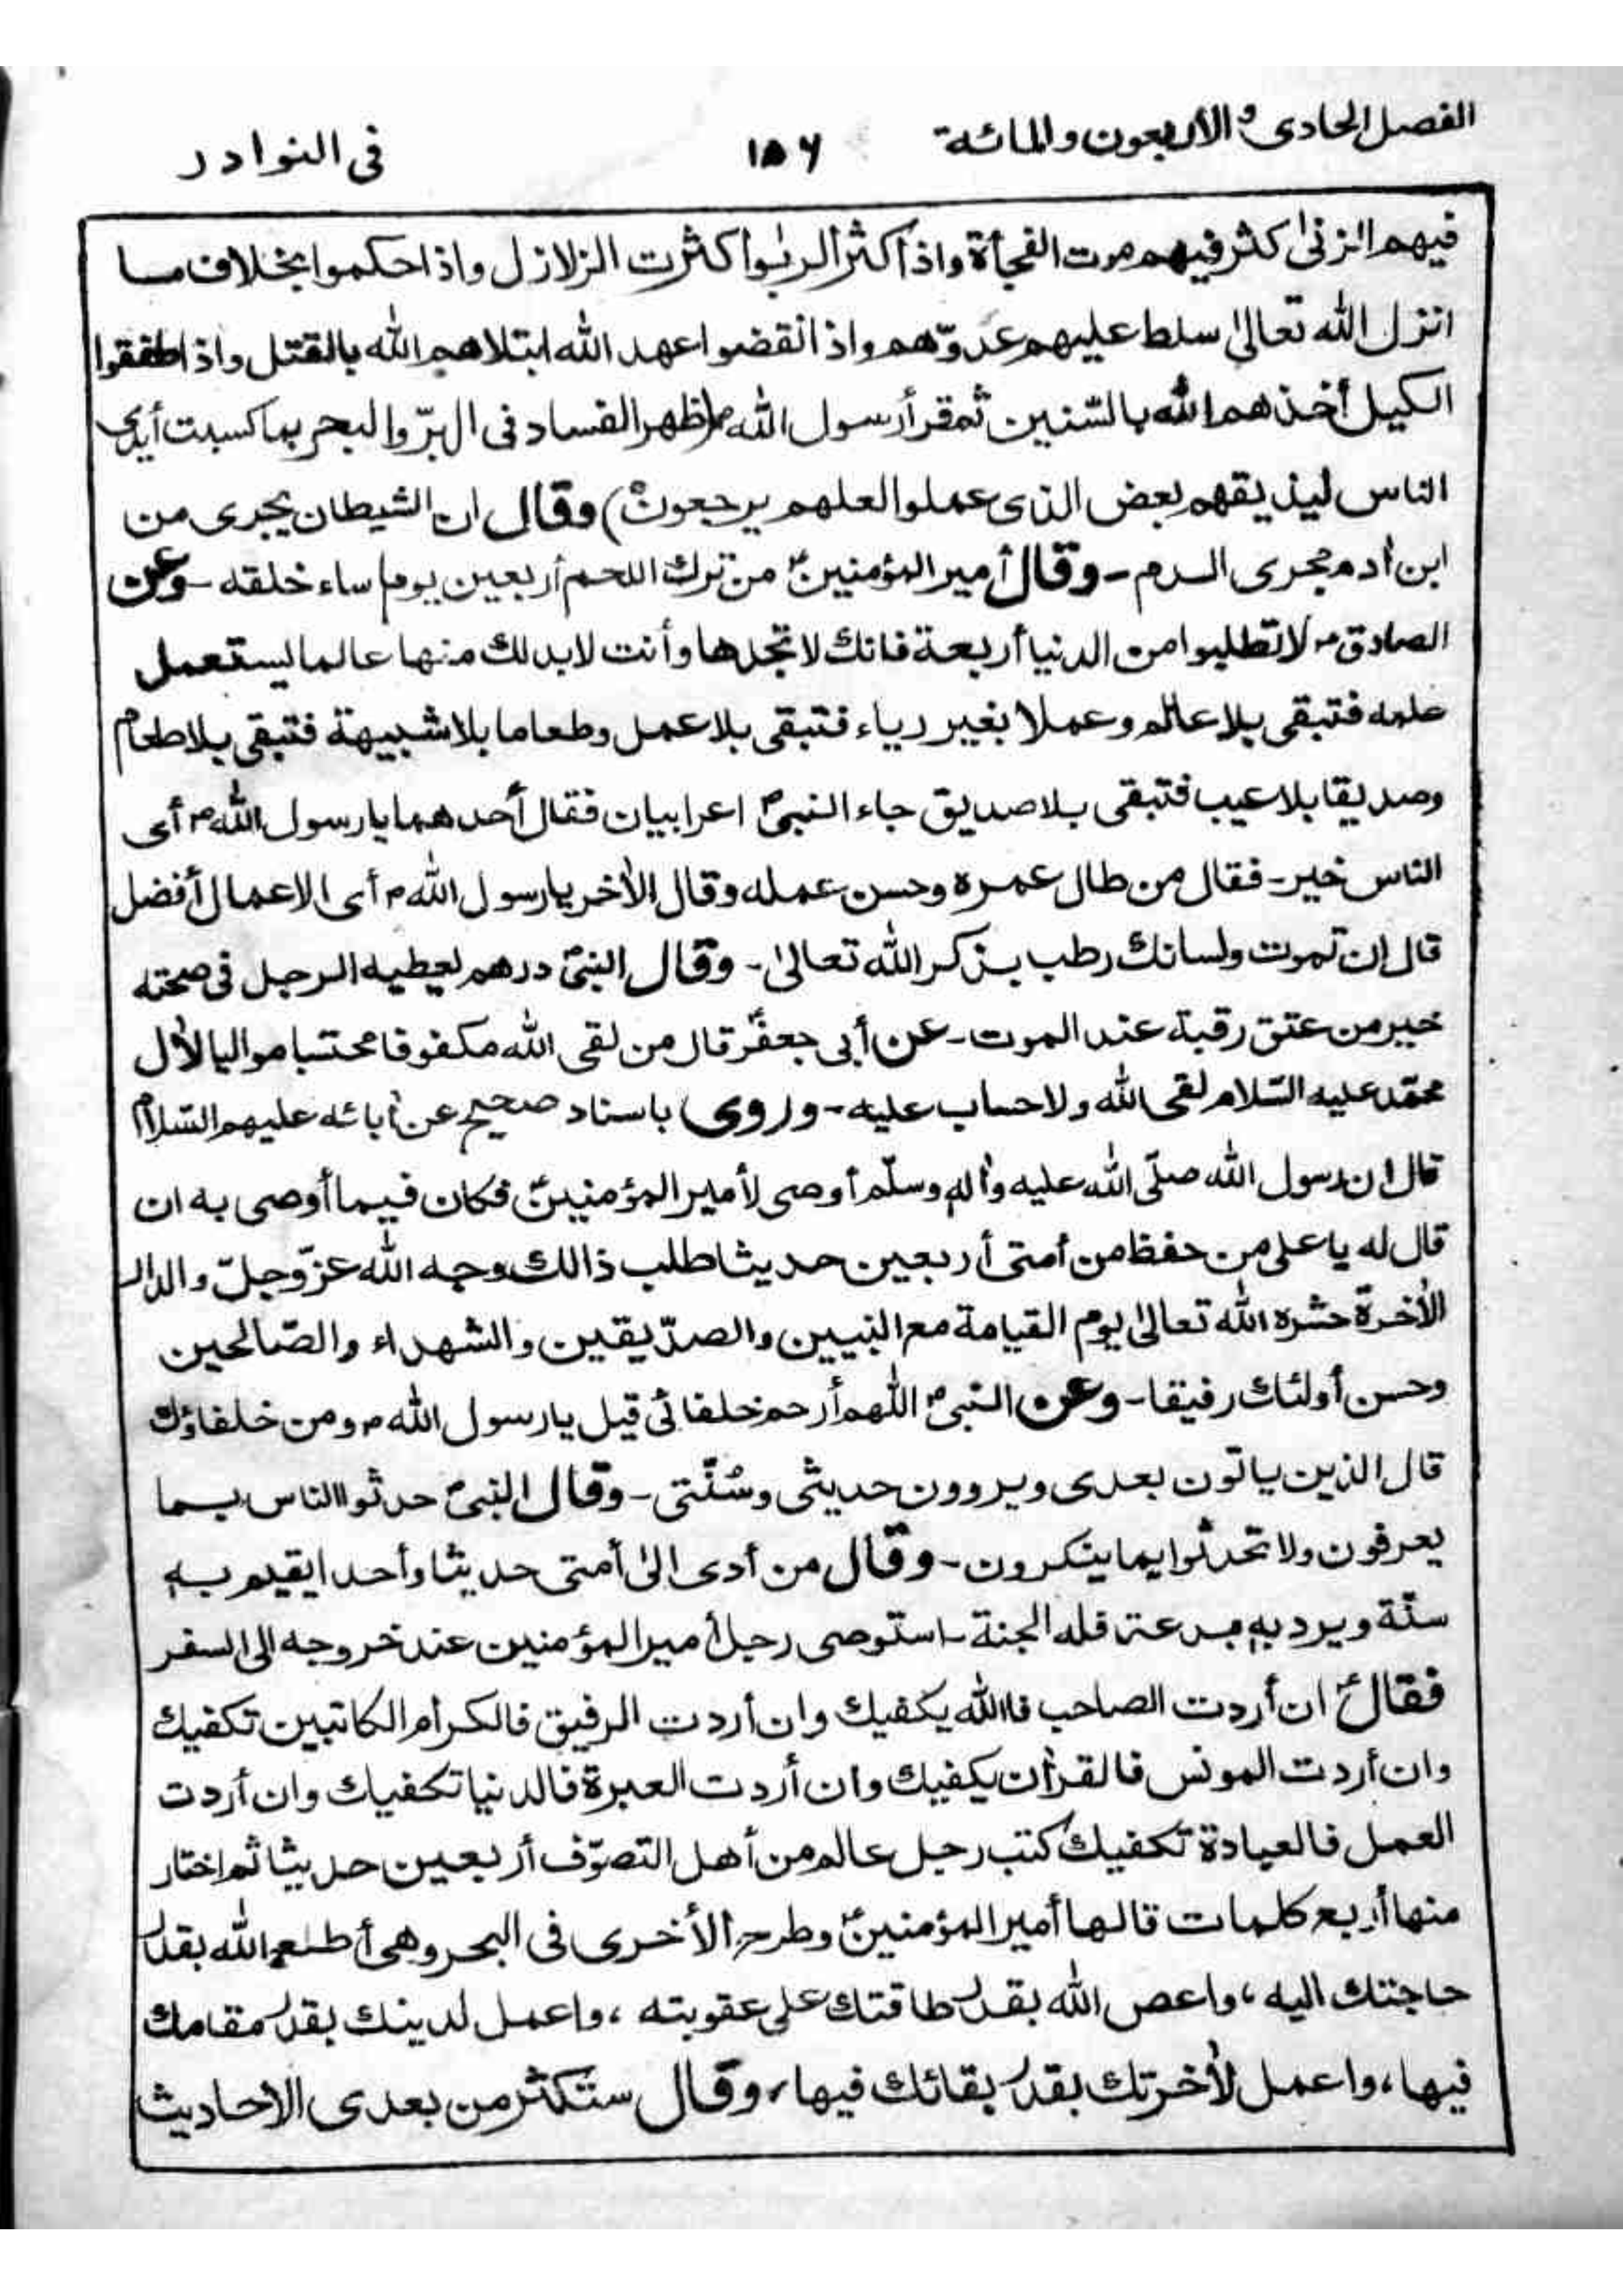 الفصل الحادى والأربعون والمائة ١٥٦ فى النوادر
فيهم الزنىٰ كثر فيهم موت الفجأة واذا كثر الربٰوا كثرت الزلازل واذا حكموا بخلاف ما
انزل الله تعالىٰ سلط عليهم عدوّهم واذا نقضوا عهد الله ابتلاهم الله بالقتل واذا طففقوا
الكيل أخذهم الله بالسّنين ثم قرأ رسول الله ؐ (ظهر الفساد فى البرّ والبحر بما كسبت أيدى
الناس ليذيقهم بعض الذى عملوا لعلهم يرجعون) وقال ان الشيطان يجرى من
ابن أدم مجرى الدم - وقال أمير المؤمنينؑ من ترك اللحم أربعين يوما ساء خلقه - وعن
الصادق ؑ لا تطلبوا من الدنيا أربعة فانك لا تجدها وأنت لابد لك منها عالما يستعمل
علمه فتبقى بلا عالم وعملا بغير رياء فتبقى بلا عمل وطعاما بلا شبيهة فتبقى بلا طعام
وصديقا بلا عيب فتبقى بلا صديق جاء النبىؐ اعرابيان فقال أحدهما يا رسول اللهؐ أى
الناس خير - فقال من طال عمره وحسن عمله وقال الأخر يا رسول اللهؐ أى الاعمال أفضل
قال ان تموت ولسانك رطب بذكر الله تعالىٰ - وقال النبىؐ درهم يعطيه الرجل فى صحته
خير من عتق رقبة عند الموت - عن أبى جعفرؑ قال من لقى الله مكفوفا محتسبا مواليا لأل
محمّد عليه السّلام لقى الله ولا حساب عليه - وروى باسناد صحيح عن أبائه عليهم السّلام
قال ان رسول الله صلّى الله عليه وأله وسلّم أوصى لأمير المؤمنينؑ فكان فيما أوصى به ان
قال له يا على من حفظ من أمتى أربعين حديثا طلب ذالك وجه الله عزّ وجلّ والدار
الأخرة حشره الله تعالىٰ يوم القيامة مع النبيين والصدّيقين والشهداء والصّالحين
وحسن أولئك رفيقا - وعن النبىؐ اللهم أرحم خلفائى قيل يا رسول اللهؐ ومن خلفاؤك
قال الذين ياتون بعدى ويروون حديثى وسُنّتى - وقال النبىؐ حدثوا الناس بما
يعرفون ولا تحدثوا بما ينكرون - وقال من أدى الىٰ أمتى حديثا وأحدا يقيم به
سنّة ويرد به بدعة فله الجنة - استوصى رجل أمير المؤمنين عند خروجه الى السفر
فقالؑ ان أردت الصاحب فاالله يكفيك وان أردت الرفيق فالكرام الكاتبين تكفيك
وان أردت المونس فالقرأن يكفيك وان أردت العبرة فالدنيا تكفيك وان أردت
العمل فالعبادة تكفيك كتب رجل عالم من أهل التصوّف أربعين حديثا ثم اختار
منها أربع كلمات قالها أمير المؤمنينؑ وطرح الأخرى فى البحر وهى أطع الله بقدر
حاجتك اليه ، واعص الله بقدر طاقتك على عقوبته ، واعمل لدينك بقدر مقامك
فيها ، واعمل لأخرتك بقدر بقائك فيها ، وقال ستكثر من بعدى الاحاديث